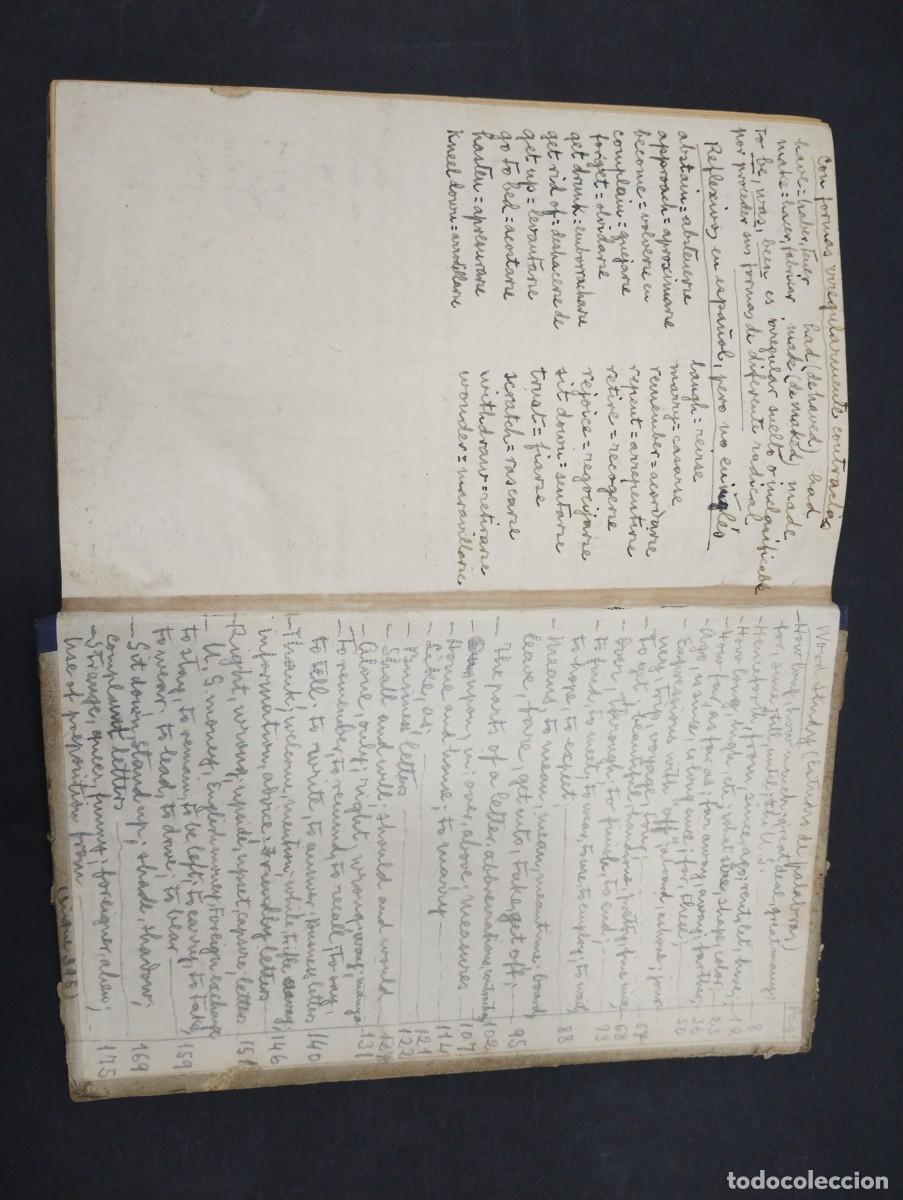 Con formas irregularmente contractas
have = haber, tener had (de haved) had
make = hacer, fabricar made (de maked) made
To be, was, been es irregular suelto o inclasificable
por proceder sus formas de diferente radical
Reflexivos en español, pero no en inglés
abstain = abstenerse
approach = aproximarse
become = volverse en
complain = quejarse
forget = olvidarse
get drunk = emborracharse
get rid of = deshacerse de
get up = levantarse
go to bed = acostarse
hasten = apresurarse
kneel down = arrodillarse
laugh = reirse
marry = casarse
remember = acordarse
repent = arrepentirse
retire = recogerse
rejoice = regocijarse
sit down = sentarse
trust = fiarse
scratch = rascarse
withdraw = retirarse
wonder = maravillarse
Word study (Estudio de palabras) Pág
- How long, how much, great deal, great many;
for, since, till, until, still, U.S. 8
- Henceforth, from, since, ago; rent, let, hire; 12
- How long, high, etc; what size, shape, color; 23
- How far, as far as; far away, away; farther; 36
- Ago, since, using since; for, these) 50
- Expressions with off; aboard, ashore; jour
ney, trip, voyage; tony; 67
- To get; beautiful, handsome, pretty, fine, nice; 68
- Over, through; to finish, to end; 73
- To find, to meet; to wear, to use, to employ; to wait,
to hope, to expect; 88
- Means, to mean, mean, meantime; board;
leave, fare, get into, take, get off; 95
- The parts of a letter, abbreviations, 102
- upon, in; over, above; measures 107
- Home and house; to marry 114
- Like, as; 121
- Business letters 122
- Shall and will, should and would 127
- Alone, only; right, wrong, way; manya 131
- To remember, to remind, to recall, to say,
to tell. to write, to answer, business letters 140
- Thank, welcome, mention; while, to fle away;
information, advice. Friendly letters 146
- Right, wrong, upside, upset, capsize; letters 151
- U. S. money, English money, Foreign exchange
to stay, to remain, to be left; to carry, to take,
to wear. to lead, to drive; to bear 159
- Sit down, stand up; shade, shadow;
complaint letters 169
- Stranger, queer, funny; foreigner, alien;
use of preposition from 175
(sigue 395)
todocoleccion